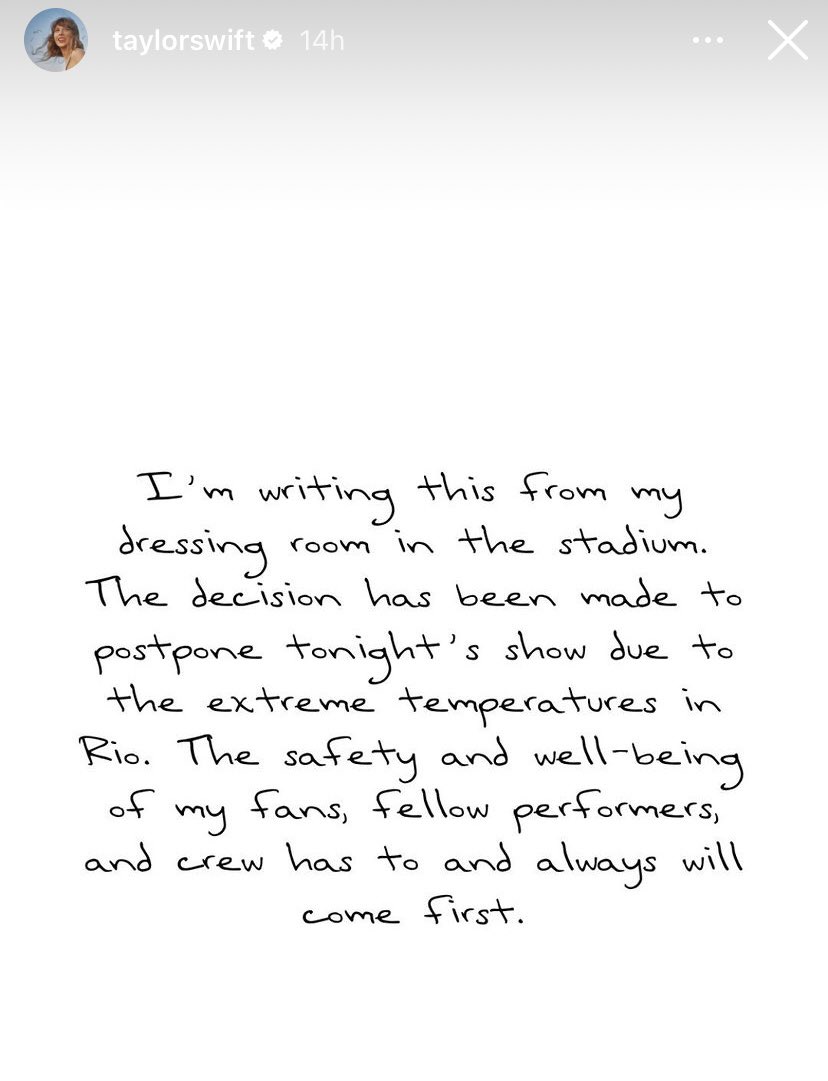 taylorswift 14h
I'm writing this from my
dressing room in the stadium.
The decision has been made to
postpone tonight's show due to
the extreme temperatures in
Rio. The safety and well-being
of my fans, fellow performers,
and crew has to and always will
come first.